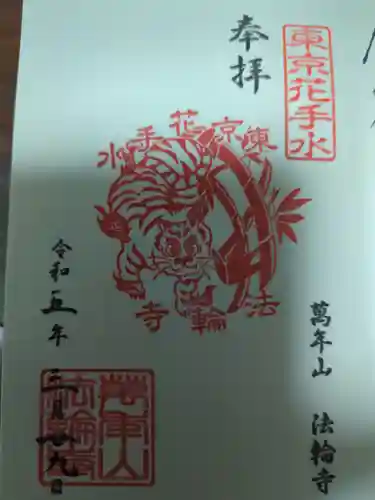 奉拝
東京花手水
東京花手水
法輪寺
萬年山 法輪寺
令和五年 三月廿九日
萬年山
法輪寺